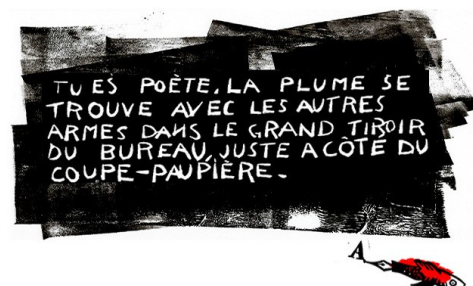 TU ES POÈTE, LA PLUME SE
TROUVE AVEC LES AUTRES
ARMES DANS LE GRAND TIROIR
DU BUREAU, JUSTE A CÔTÉ DU
COUPE-PAUPIÈRE.
A